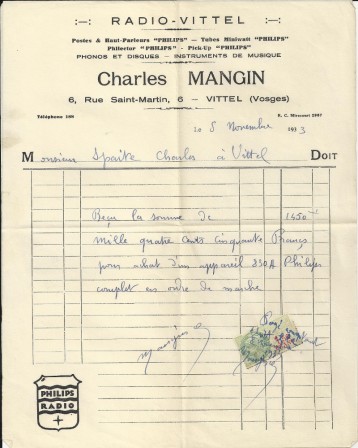 :—: RADIO-VITTEL :—:
Postes & Haut-Parleurs "PHILIPS" — Tubes Miniwatt "PHILIPS"
Philector "PHILIPS" - Pick-Up "PHILIPS"
PHONOS ET DISQUES — INSTRUMENTS DE MUSIQUE
Charles MANGIN
6, Rue Saint-Martin, 6 — VITTEL (Vosges)
Téléphone R. C. Mirecourt
5 Novembre 1933
Monsieur Charles à Vittel DOIT
Reçu la somme de 1450
mille quatre cents cinquante Francs
pour achat d'un appareil 830A Philips
complet en ordre de marche
PHILIPS
RADIO